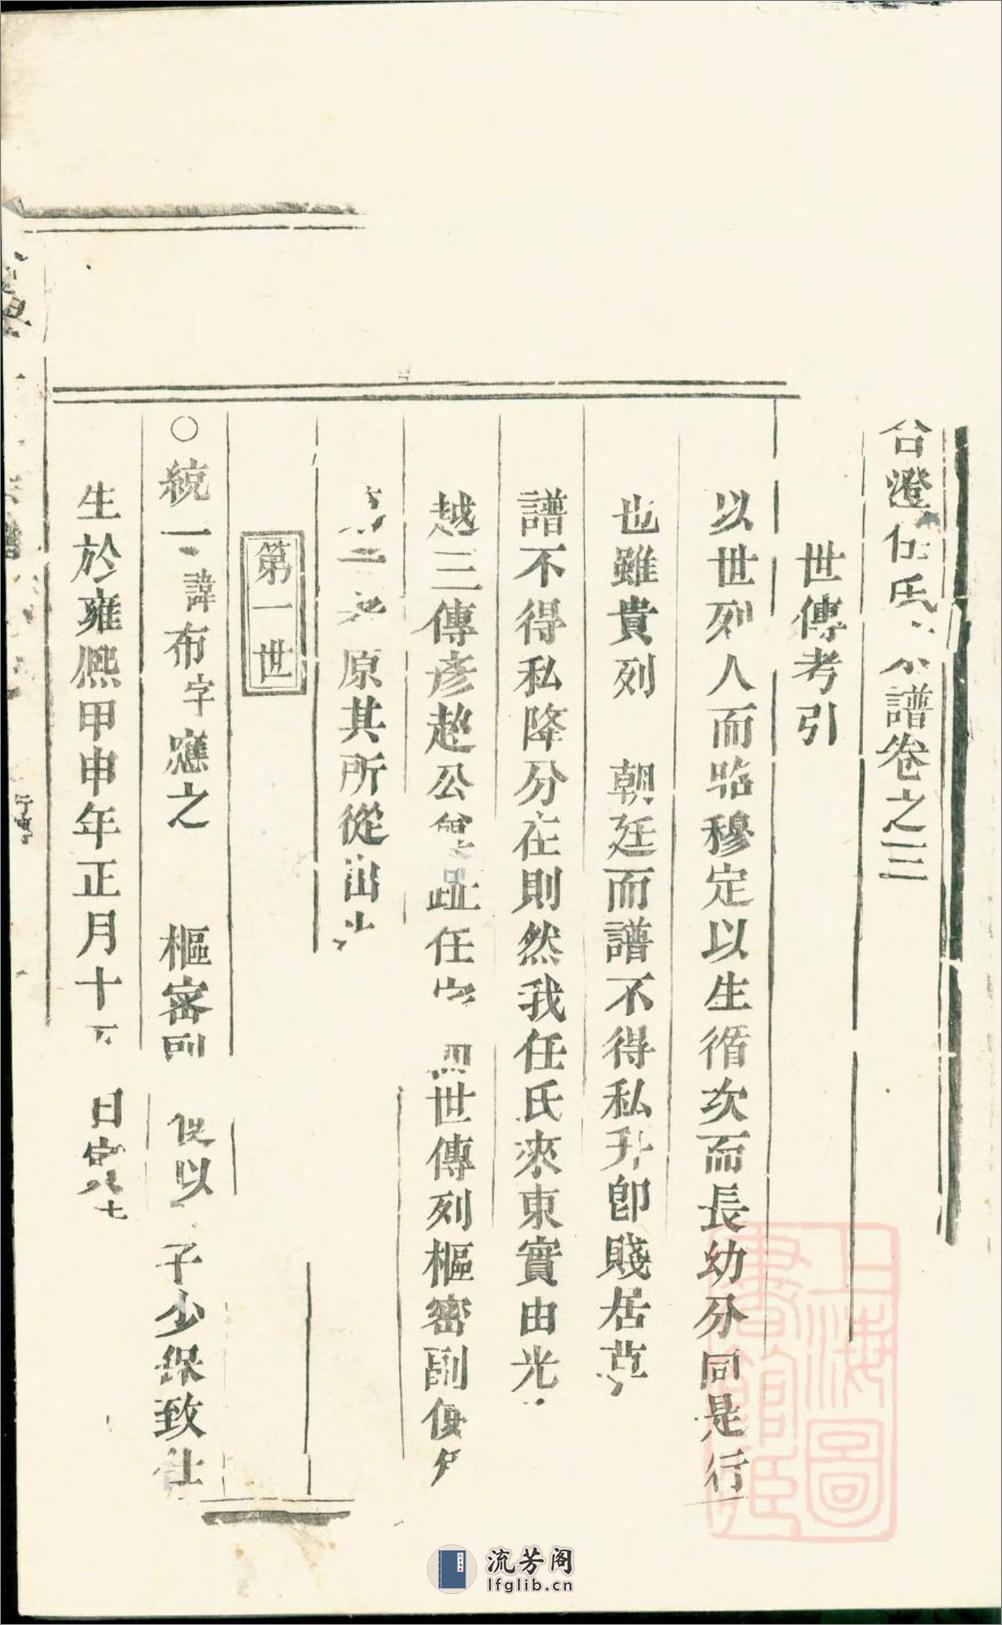 台澄任氏宗譜卷之三
世傳考引
以世列人而昭穆定以生循次而長幼分同是行
也雖貴列 朝廷而譜不得私升卽賤居草
譜不得私降分在則然我任氏來東實由光
越三傳彥趂公 趾任 世傳列樞密副使
原其所從出
第一世
○統一諱布字應之 樞密副 使以 子少保致仕
生於雍熙甲申年正月十五 日
上海圖書館藏
流芳阁
lfglib.cn